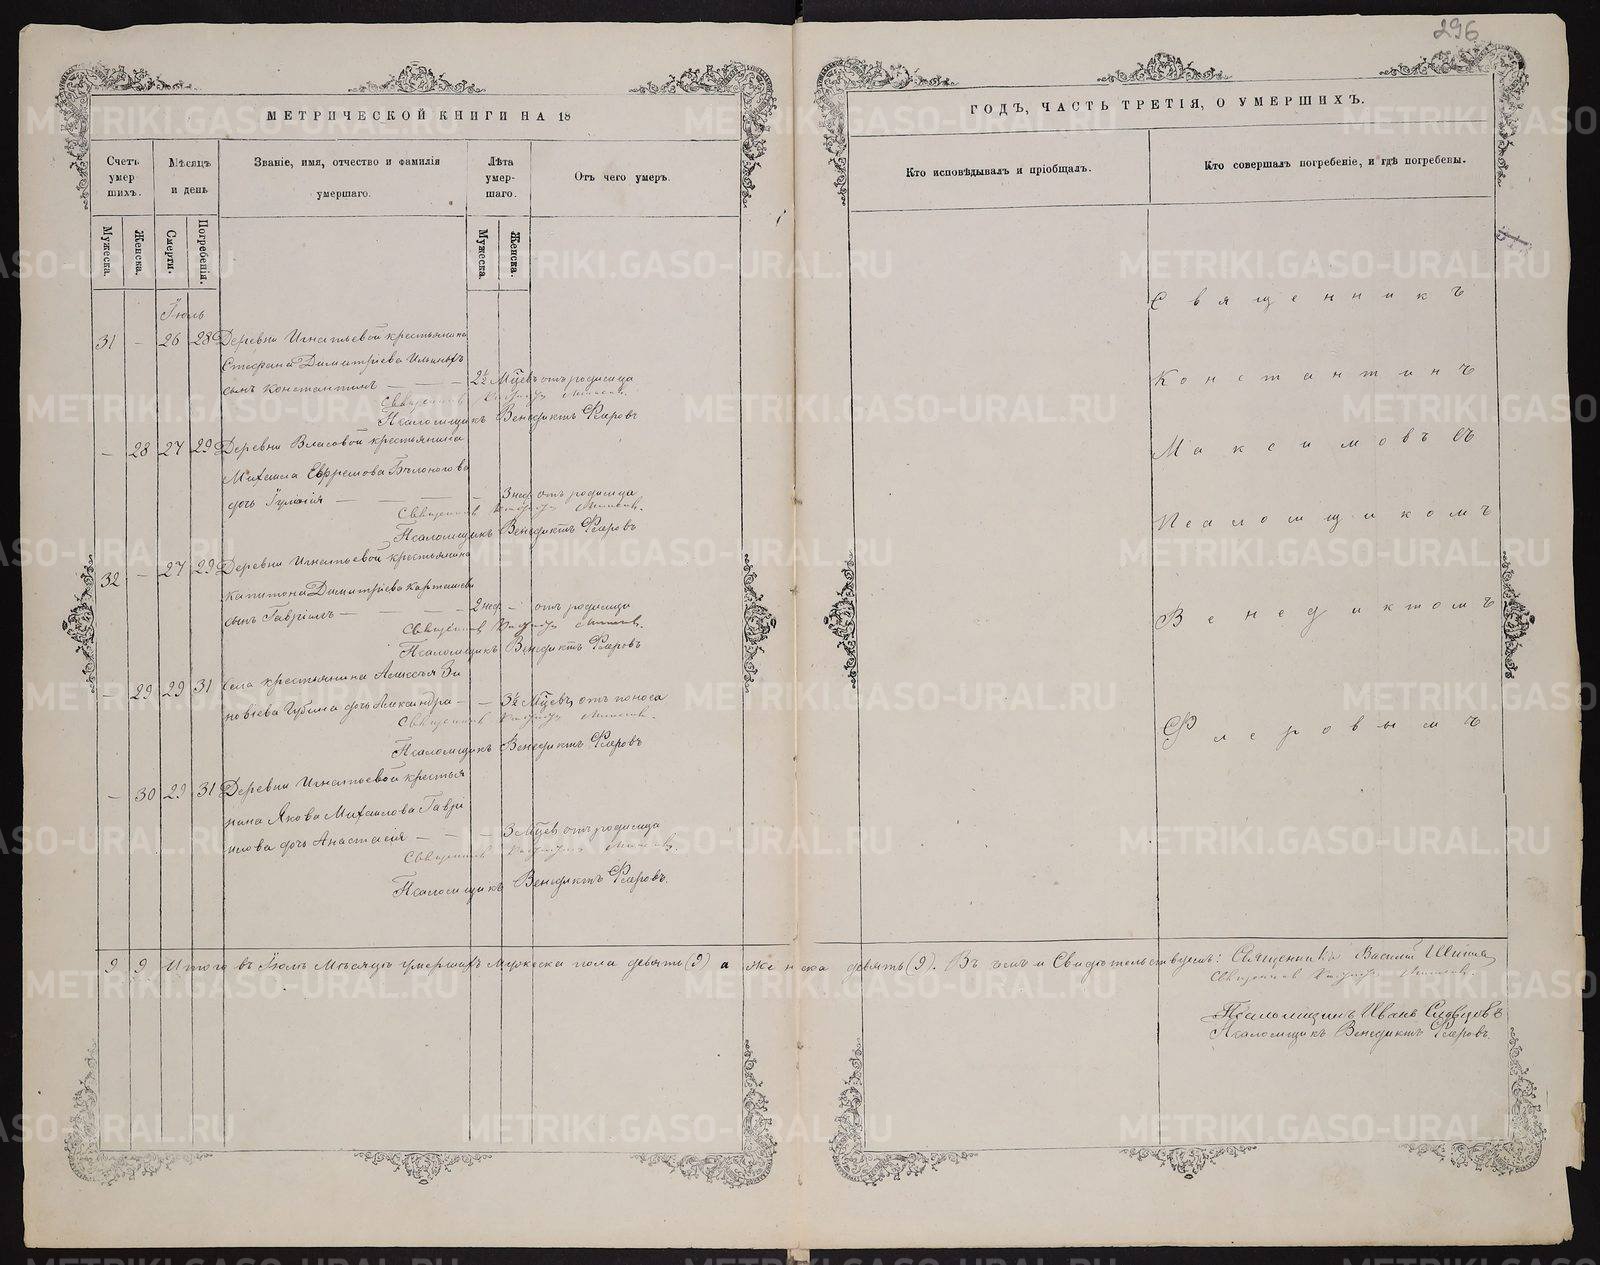 296
МЕТРИЧЕСКОЙ КНИГИ НА 18
ГОДЪ, ЧАСТЬ ТРЕТІЯ, О УМЕРШИХЪ.
Счетъ умер шихъ.
Мѣсяцъ и день
Званіе, имя, отчество и фамилія умершаго.
Лѣта умер- шаго.
Отъ чего умеръ.
Кто исповѣдывалъ и пріобщалъ.
Кто совершалъ погребеніе, и гдѣ погребены.
Мужеска.
Женска.
Смерти.
Погребенія.
Мужеска.
Женска.
Іюль
31 - 26 28 Деревни Игнатьевой крестьянина
Стефана Димитріева Ильиныхъ
сынъ Константинъ — — — 2½ Мцевъ отъ родимца
Священникъ
Псаломщикъ Венедиктъ Флеровъ
— 28 27 29 Деревни Власовой крестьянина
Михаила Ефремова Бѣлоногова
дочь Іуліанія — — — — 3 нед отъ родимца
Священникъ
Псаломщикъ Венедиктъ Флеровъ
32 - 27 29 Деревни Игнатьевой крестьянина
Капитона Димитріева Карташева
сынъ Гавріилъ — — — — 2 нед - отъ родимца
Священникъ
Псаломщикъ Венедиктъ Флеровъ
— 29 29 31 Села крестьянина Алексѣя Зи
новіева Губина дочь Александра — — 3½ Мцевъ отъ поноса
Священникъ
Псаломщикъ Венедиктъ Флеровъ
— 30 29 31 Деревни Игнатьевой крестья
нина Якова Михаилова Гаврі
илова дочь Анастасія — — — 3 Мцевъ отъ родимца
Священникъ
Псаломщикъ Венедиктъ Флеровъ.
Священникъ
Константинъ
Максимовъ съ
Псаломщикомъ
Венедиктомъ
Флеровымъ
9 9 Итого въ Іюлѣ Мѣсяцѣ умершихъ Мужеска пола девять (9) а женска девять (9). Въ чемъ и Свидѣтельствуемъ: Священникъ Василій
Священникъ
Псаломщикъ Иванъ Словцовъ
Псаломщикъ Венедиктъ Флеровъ.
METRIKI.GASO-URAL.RU